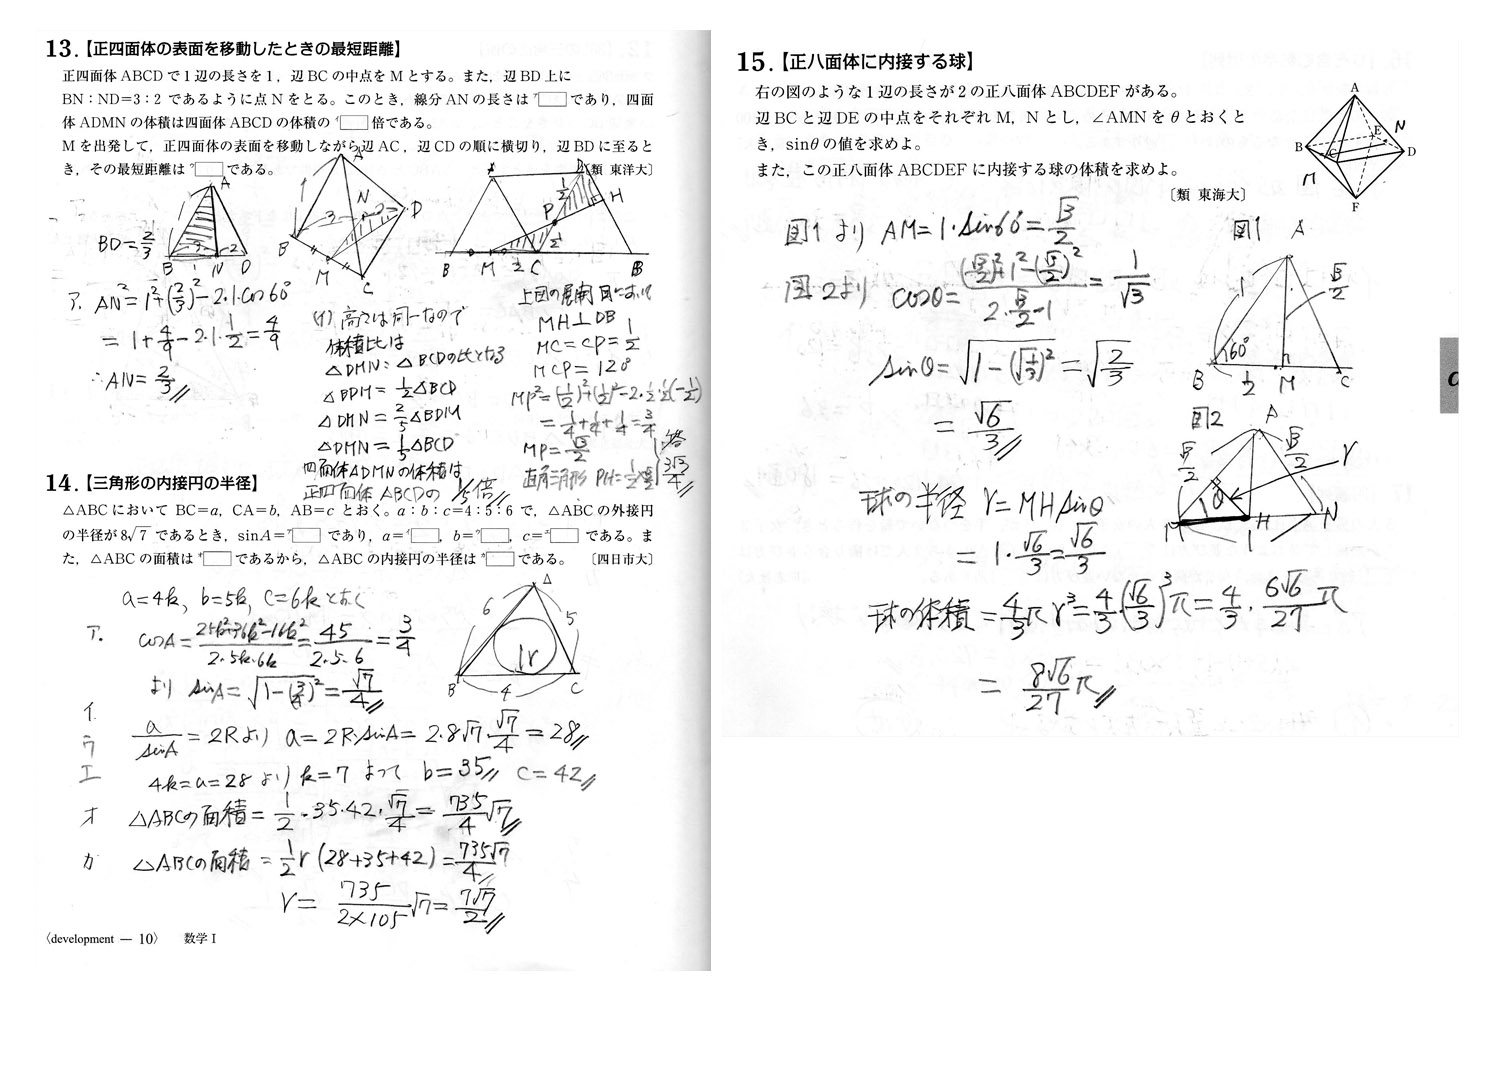 13.【正四面体の表面を移動したときの最短距離】
正四面体 ABCD で 1 辺の長さを 1，辺 BC の中点を M とする。また，辺 BD 上に
BN：ND＝3：2 であるように点 N をとる。このとき，線分 AN の長さは ア□ であり，四面
体 ADMN の体積は四面体 ABCD の体積の イ□ 倍である。
M を出発して，正四面体の表面を移動しながら辺 AC，辺 CD の順に横切り，辺 BD に至ると
き，その最短距離は ウ□ である。
〔類 東洋大〕
A
BD=2/3
3
2
B 1 N D
A
1
N
3
2
D
B
M
C
A
D
1/2
H
P
1/2
B M 1/2 C B
ア. AN²=1²+(2/3)²-2・1・cos60°
=1+4/9-2・1・1/2=4/9
∴AN=2/3
(イ) 高さは同一なので
体積比は
△DMN:△BCDの比となる
△BDM=1/2△BCD
△DMN=2/5△BDM
△DMN=1/5△BCD
四面体ADMNの体積は
正四面体ABCDの 1/5倍
上図の展開図において
MH⊥DB
MC=CP=1/2
MCP=120°
MP²=(1/2)²+(1/2)²-2・1/2・1/2(-1/2)
=1/4+1/4+1/4=3/4
MP=√3/2
直角三角形 PH=1/2×√3/2
答 3√3/4
14.【三角形の内接円の半径】
△ABC において BC＝a，CA＝b，AB＝c とおく。a：b：c＝4：5：6 で，△ABC の外接円
の半径が 8√7 であるとき，sin A＝ア□ であり，a＝イ□，b＝ウ□，c＝エ□ である。ま
た，△ABC の面積は オ□ であるから，△ABC の内接円の半径は カ□ である。 〔四日市大〕
a=4k, b=5k, c=6kとおく
ア. cosA=25k²+36k²-16k²/2・5k・6k=45/2・5・6=3/4
より sinA=√1-(3/4)²=√7/4
A
6
5
r
B 4 C
イ a/sinA=2Rより a=2R・sinA=2・8√7・√7/4=28
ウ
エ 4k=a=28より k=7 よって b=35 c=42
オ △ABCの面積=1/2・35・42・√7/4=735/4√7
カ △ABCの面積=1/2r(28+35+42)=735√7/4
r=735/2×105√7=7√7/2
〈development — 10〉 数学 I
15.【正八面体に内接する球】
右の図のような 1 辺の長さが 2 の正八面体 ABCDEF がある。
辺 BC と辺 DE の中点をそれぞれ M，N とし，∠AMN を θ とおくと
き，sinθ の値を求めよ。
また，この正八面体 ABCDEF に内接する球の体積を求めよ。
〔類 東海大〕
A
E
N
B
D
C
M
F
図1より AM=1・sin60°=√3/2
図2より cosθ=(√3/2)²+1²-(√3/2)²/2・√3/2・1=1/√3
sinθ=√1-(√1/3)²=√2/3
=√6/3
図1
A
1
√3/2
60°
B 1/2 M C
図2
A
√3/2
√3/2
r
θ
M H N
1
球の半径 r=MHsinθ
=1・√6/3=√6/3
球の体積=4/3πr³=4/3・(√6/3)³π=4/3・6√6/27π
=8√6/27π